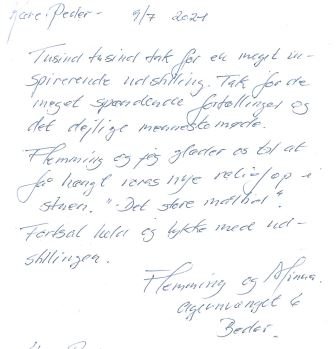 Kære Peder - 9/7 2021
Tusind tusind tak for en meget in-
spirerende udstilling. Tak for de
meget spændende fortællinger og
det dejlige menneskemøde.
Flemming og jeg glæder os til at
få hængt vores nye relief op i
stuen. "Det store måltid".
Fortsat held og lykke med ud-
stillingen.
Flemming og
Agernvænget 6
Beder.